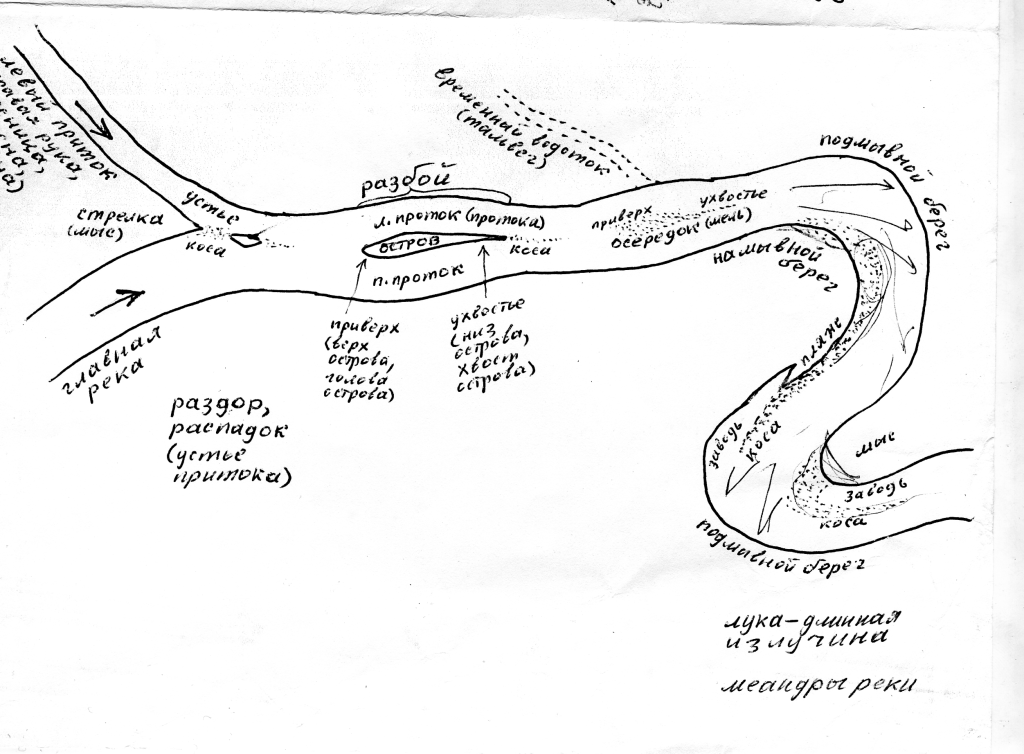 левый приток
рука,
стрелка
(мыс)
устье
коса
главная
река
раздор,
распадок
(устье
притока)
раздой
л. проток (протока)
остров
коса
п. проток
приверх
(верх
острова,
голова
острова)
ухвостье
(низ
острова,
хвост
острова)
временный водоток
(тальвег)
приверх
ухвостье
осередок (мель)
намывной
берег
подмывной
берег
пляж
заводь
коса
мыс
заводь
коса
подмывной берег
лука-длинная
излучина
меандры реки